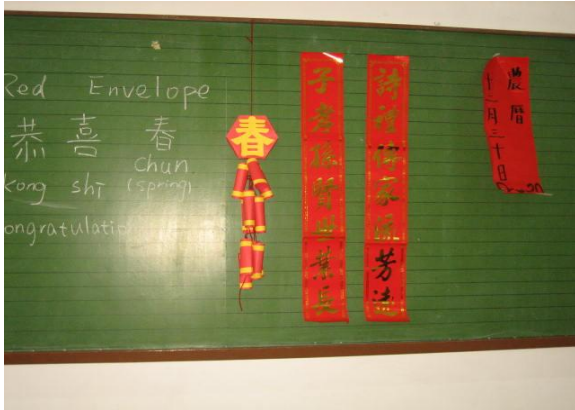 Red Envelope
恭喜 春
kong shi
chun
(spring)
ongratulatio
春
子孝孫賢世業長
詩禮傳家流芳遠
農曆
十二月三十日